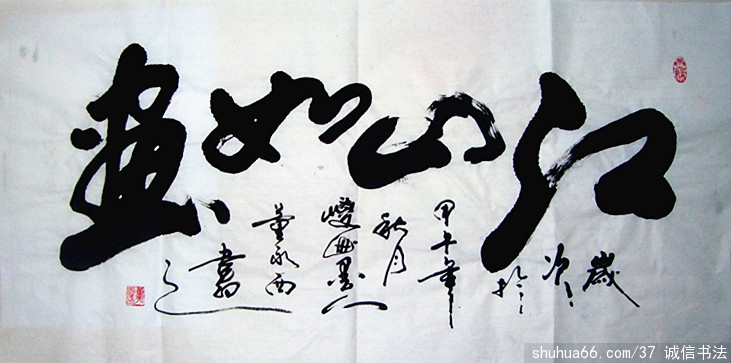 江山如画
歲次於
甲午年
秋月
墨人
董永西
書之
shuhua66.com/37 诚信书法